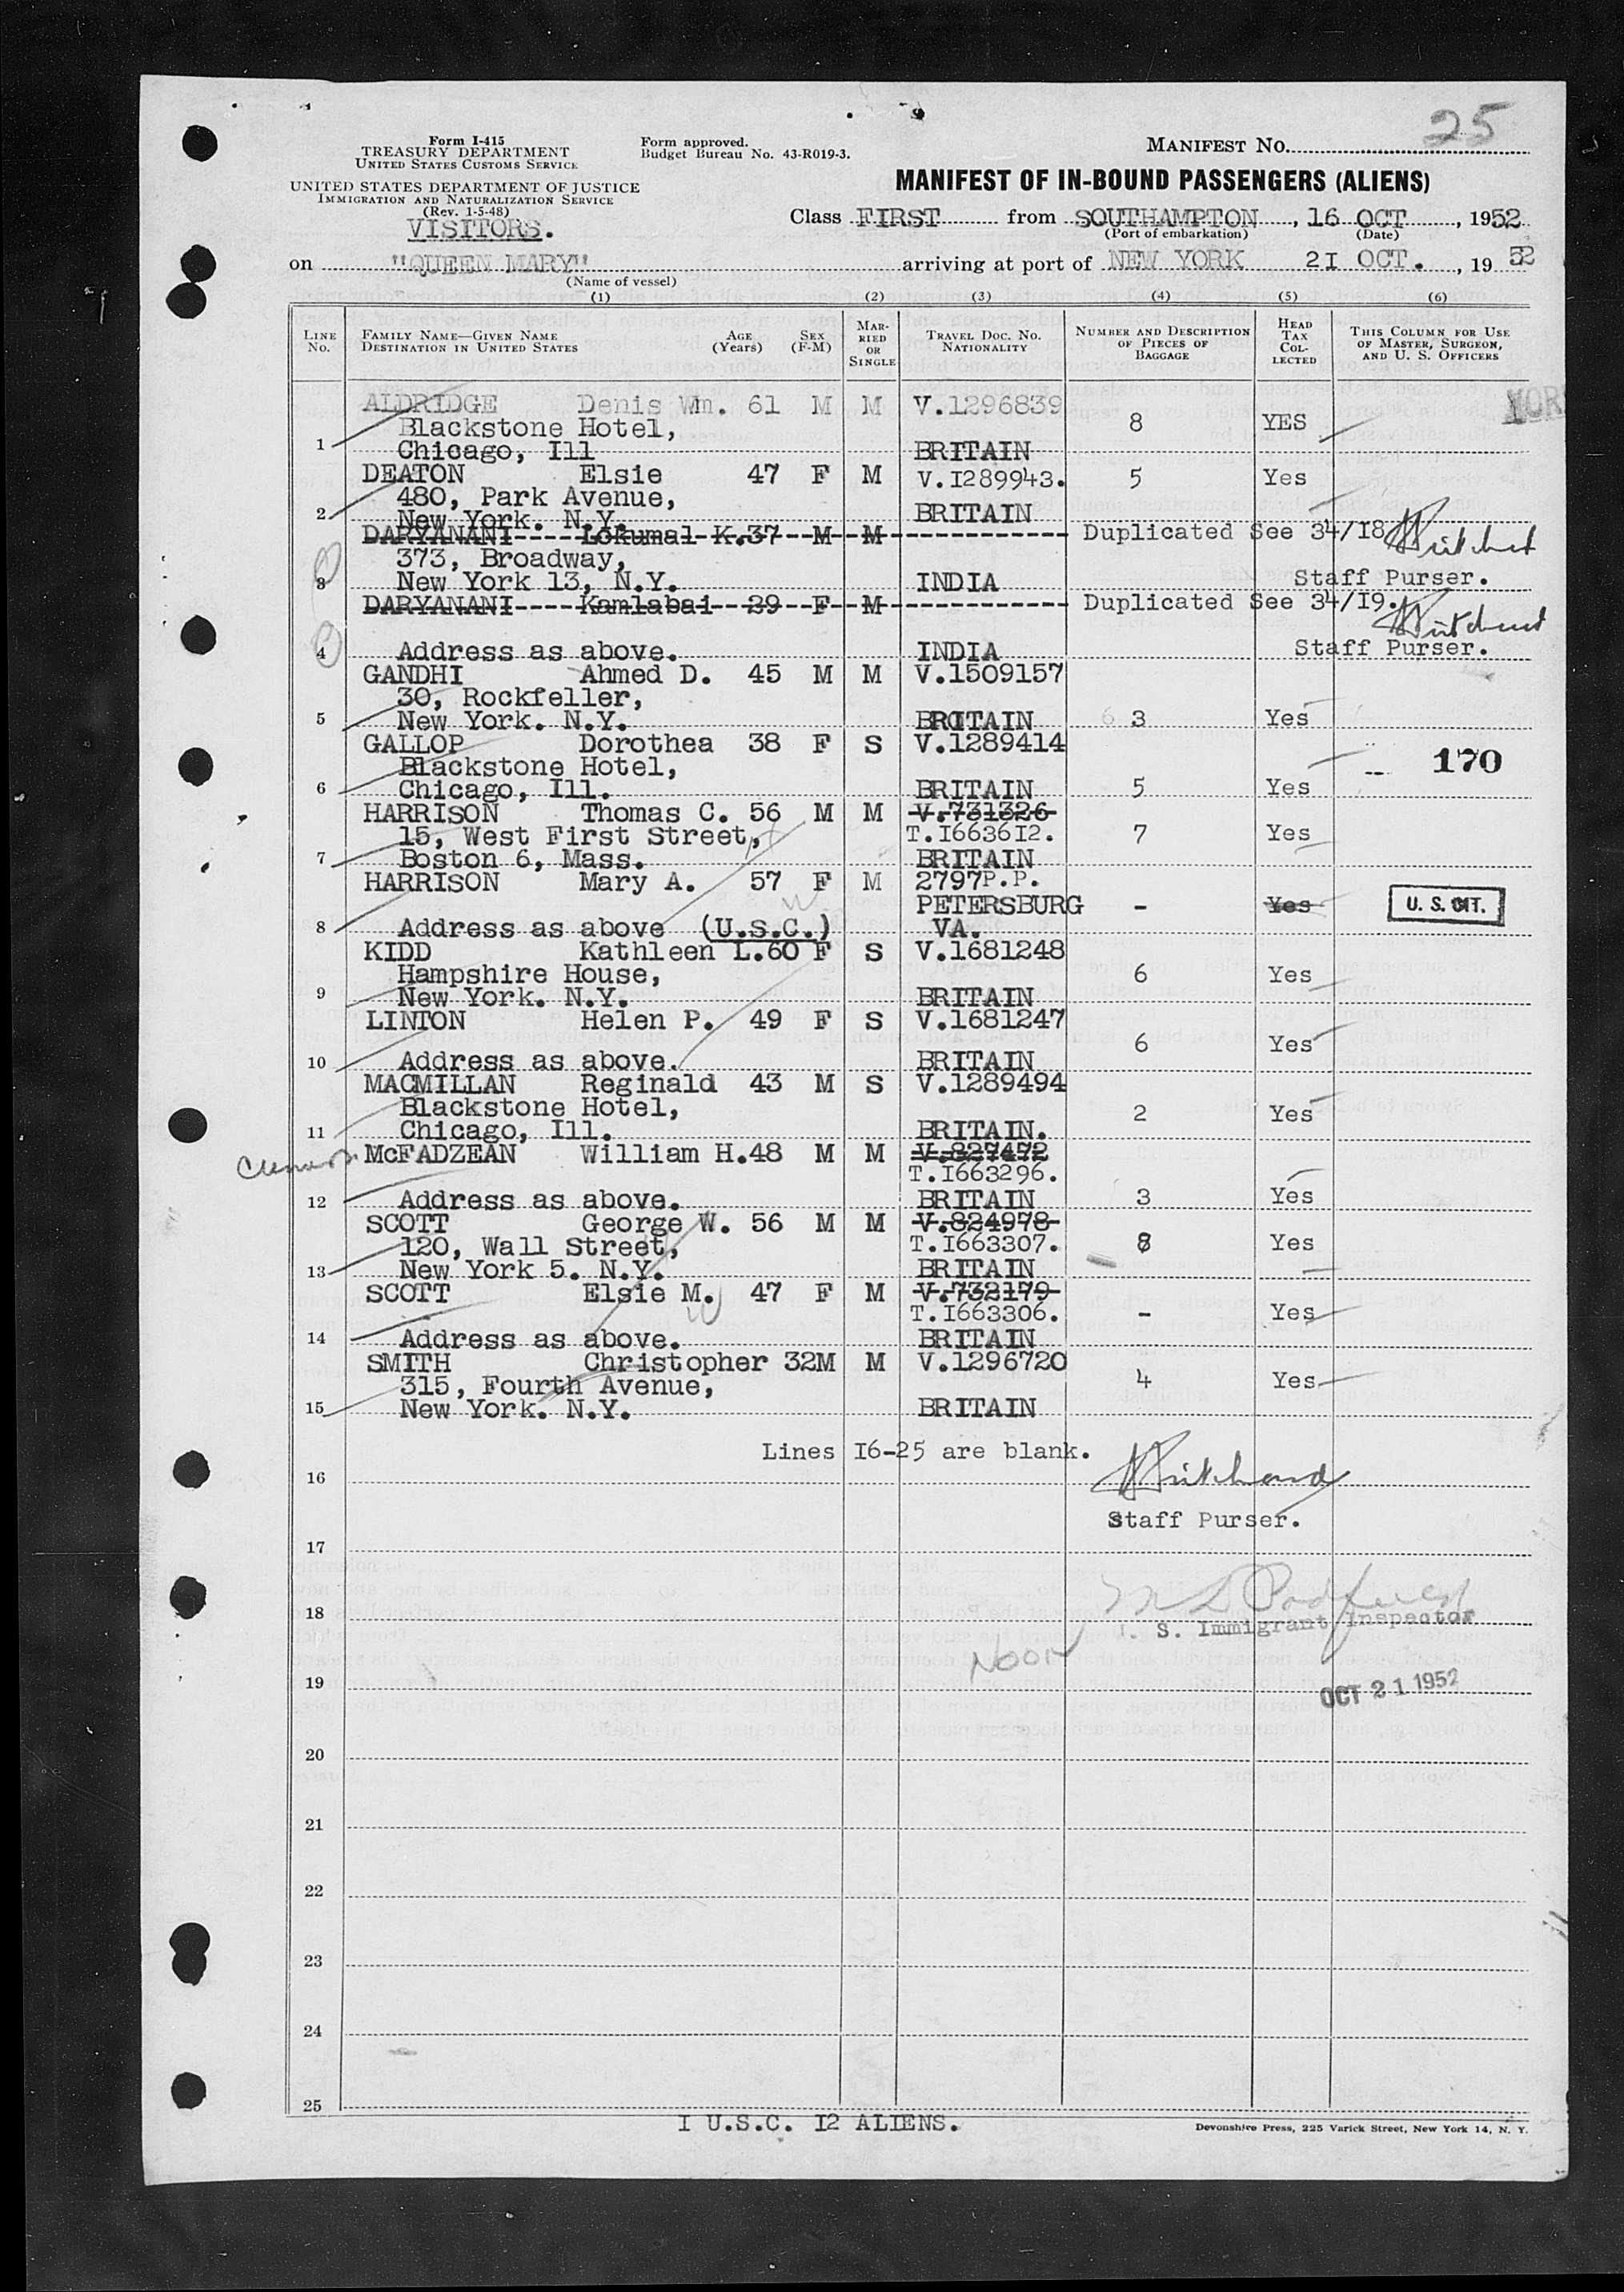 25
Form I-415
TREASURY DEPARTMENT
UNITED STATES CUSTOMS SERVICE
Form approved.
Budget Bureau No. 43-R019-3.
MANIFEST NO.
UNITED STATES DEPARTMENT OF JUSTICE
IMMIGRATION AND NATURALIZATION SERVICE
(Rev. 1-5-48)
VISITORS.
MANIFEST OF IN-BOUND PASSENGERS (ALIENS)
Class FIRST from SOUTHAMPTON, 16 OCT, 1952
(Port of embarkation) (Date)
on "QUEEN MARY" arriving at port of NEW YORK 21 OCT., 1952
(Name of vessel)
(1) (2) (3) (4) (5) (6)
LINE NO. FAMILY NAME—GIVEN NAME DESTINATION IN UNITED STATES AGE (Years) SEX (F-M) MARRIED OR SINGLE TRAVEL DOC. NO. NATIONALITY NUMBER AND DESCRIPTION OF PIECES OF BAGGAGE HEAD TAX COLLECTED THIS COLUMN FOR USE OF MASTER, SURGEON, AND U. S. OFFICERS
ALDRIDGE Denis Wm. 61 M M V.1296839
Blackstone Hotel, 8 YES
1 Chicago, Ill BRITAIN
DEATON Elsie 47 F M V.I289943. 5 Yes
480, Park Avenue,
2 New York. N.Y. BRITAIN
DARYANANI Lokumal K. 37 M M Duplicated See 34/I8
373, Broadway,
3 New York 13, N.Y. INDIA Staff Purser.
DARYANANI Kamlabai 29 F M Duplicated See 34/I9.
4 Address as above. INDIA Staff Purser.
GANDHI Ahmed D. 45 M M V.1509157
30, Rockfeller,
5 New York. N.Y. BRITAIN 3 Yes
GALLOP Dorothea 38 F S V.1289414
170
Blackstone Hotel,
6 Chicago, Ill. BRITAIN 5 Yes
HARRISON Thomas C. 56 M M V.731326
15, West First Street, T.I6636I2. 7 Yes
7 Boston 6, Mass. BRITAIN
HARRISON Mary A. 57 F M 2797P.P.
PETERSBURG - Yes U. S. CIT.
8 Address as above (U.S.C.) VA.
KIDD Kathleen L. 60 F S V.1681248
Hampshire House, 6 Yes
9 New York. N.Y. BRITAIN
LINTON Helen P. 49 F S V.1681247
6 Yes
10 Address as above. BRITAIN
MACMILLAN Reginald 43 M S V.1289494
Blackstone Hotel, 2 Yes
11 Chicago, Ill. BRITAIN.
McFADZEAN William H. 48 M M V.827472
T.I663296.
12 Address as above. BRITAIN 3 Yes
SCOTT George W. 56 M M V.824978
120, Wall Street, T.I663307. 8 Yes
13 New York 5. N.Y. BRITAIN
SCOTT Elsie M. 47 F M V.732179
T.I663306. - Yes
14 Address as above. BRITAIN
SMITH Christopher 32 M M V.1296720
315, Fourth Avenue, 4 Yes
15 New York. N.Y. BRITAIN
Lines I6-25 are blank.
16
Staff Purser.
17
18
I. S. Immigrant Inspector
Noon
19
OCT 21 1952
20
21
22
23
24
25
I U.S.C. I2 ALIENS.
Devonshire Press, 225 Varick Street, New York 14, N. Y.